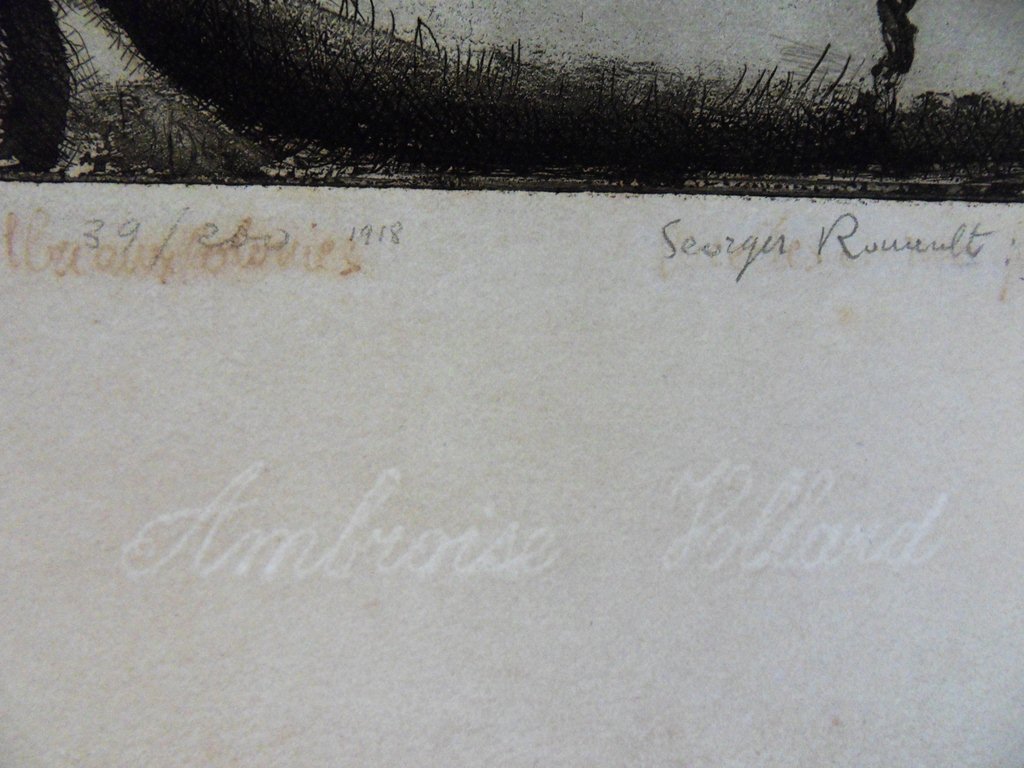 39/200 1918 Georges Rouault
Ambroise Vollard